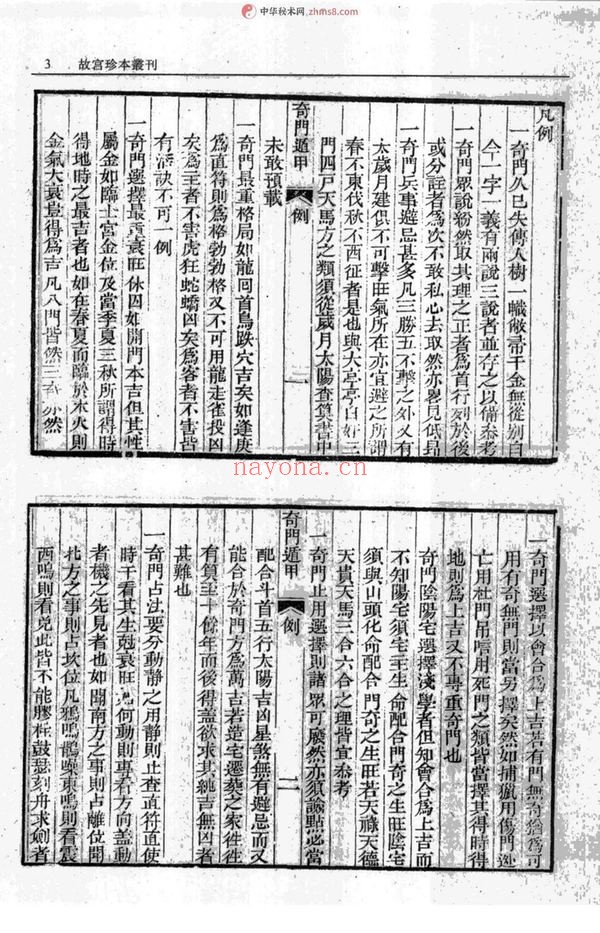 中华秘术网.zhms8.com
3 故宫珍本叢刊
凡例
一奇門久已失傳人樹一幟敝帚千金無從別白
今一字一義有兩說三說者並存之以備叅考
一奇門眾說紛然取其理之正者為首行刻於後
或分註者為次不敢私心去取然亦畧見低昻
一奇門兵事避忌甚多凡三勝五不擊之外又有
太歲月建俱不可擊旺氣所在亦宜避之所謂
春不東伐秋不西征者是也與大亭亭白奸三
門四戸天馬方之類須從歲月太陽查算書中
奇門遁甲 例 二
未敢預載
一奇門最重格局如龍囘首鳥跌穴吉矣如逢庚
為直符則為格勃勃格又不可用龍走雀投凶
矣為主者不害虎狂蛇矯凶矣為客者不害皆
有活訣不可一例
一奇門選擇最重衰旺休囚如開門本吉但其性
屬金如臨士宮金位及當季夏三秋所謂得時
得地時之最吉者也如在春夏而臨於木火則
金氣大衰豈得為吉凡八門皆然三奇亦然
nayona.cn
一奇門選擇以會合為上吉若有門無奇猶為可
用有奇無門則當另擇矣然如捕獵用傷門逃
亡用杜門吊唁用死門之類皆當擇其得時得
地則為上吉又不專重奇門也
奇門陰陽宅選擇淺學者但知會合為上吉而
不知陽宅須宅主生命配合門奇之生旺陰宅
須與山頭化命配合門奇之生旺若天祿天德
天貴天馬三合六合之理皆宜叅考
一奇門止用選擇則諸眾可廢然亦須諭點必當
奇門遁甲 例 二
配合斗首五行太陽吉凶星煞無有避忌而又
能合於奇門方為萬吉若造宅遷葬之家徃徃
有算至十餘年而後得葢欲求其純吉無凶者
甚難也
一奇門占法要分動靜之用靜則止查直符直使
時干看其生剋衰旺如何動則專看方向葢動
者機之先見者也如聞南方之事則占離位聞
北方之事則占坎位凡鴉鳴鵲噪東鳴則看震
西鳴則看兌此皆不能膠柱鼓瑟刻舟求劍者